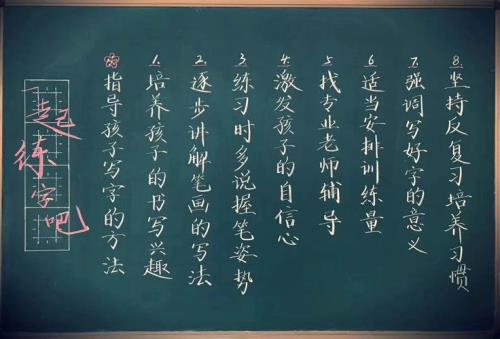 一起练字吧
指导孩子写字的方法
1.培养孩子的书写兴趣
2.逐步讲解笔画的写法
3.练习时多说握笔姿势
4.激发孩子的自信心
5.找专业老师辅导
6.适当安排训练量
7.强调写好字的意义
8.坚持反复习培养习惯